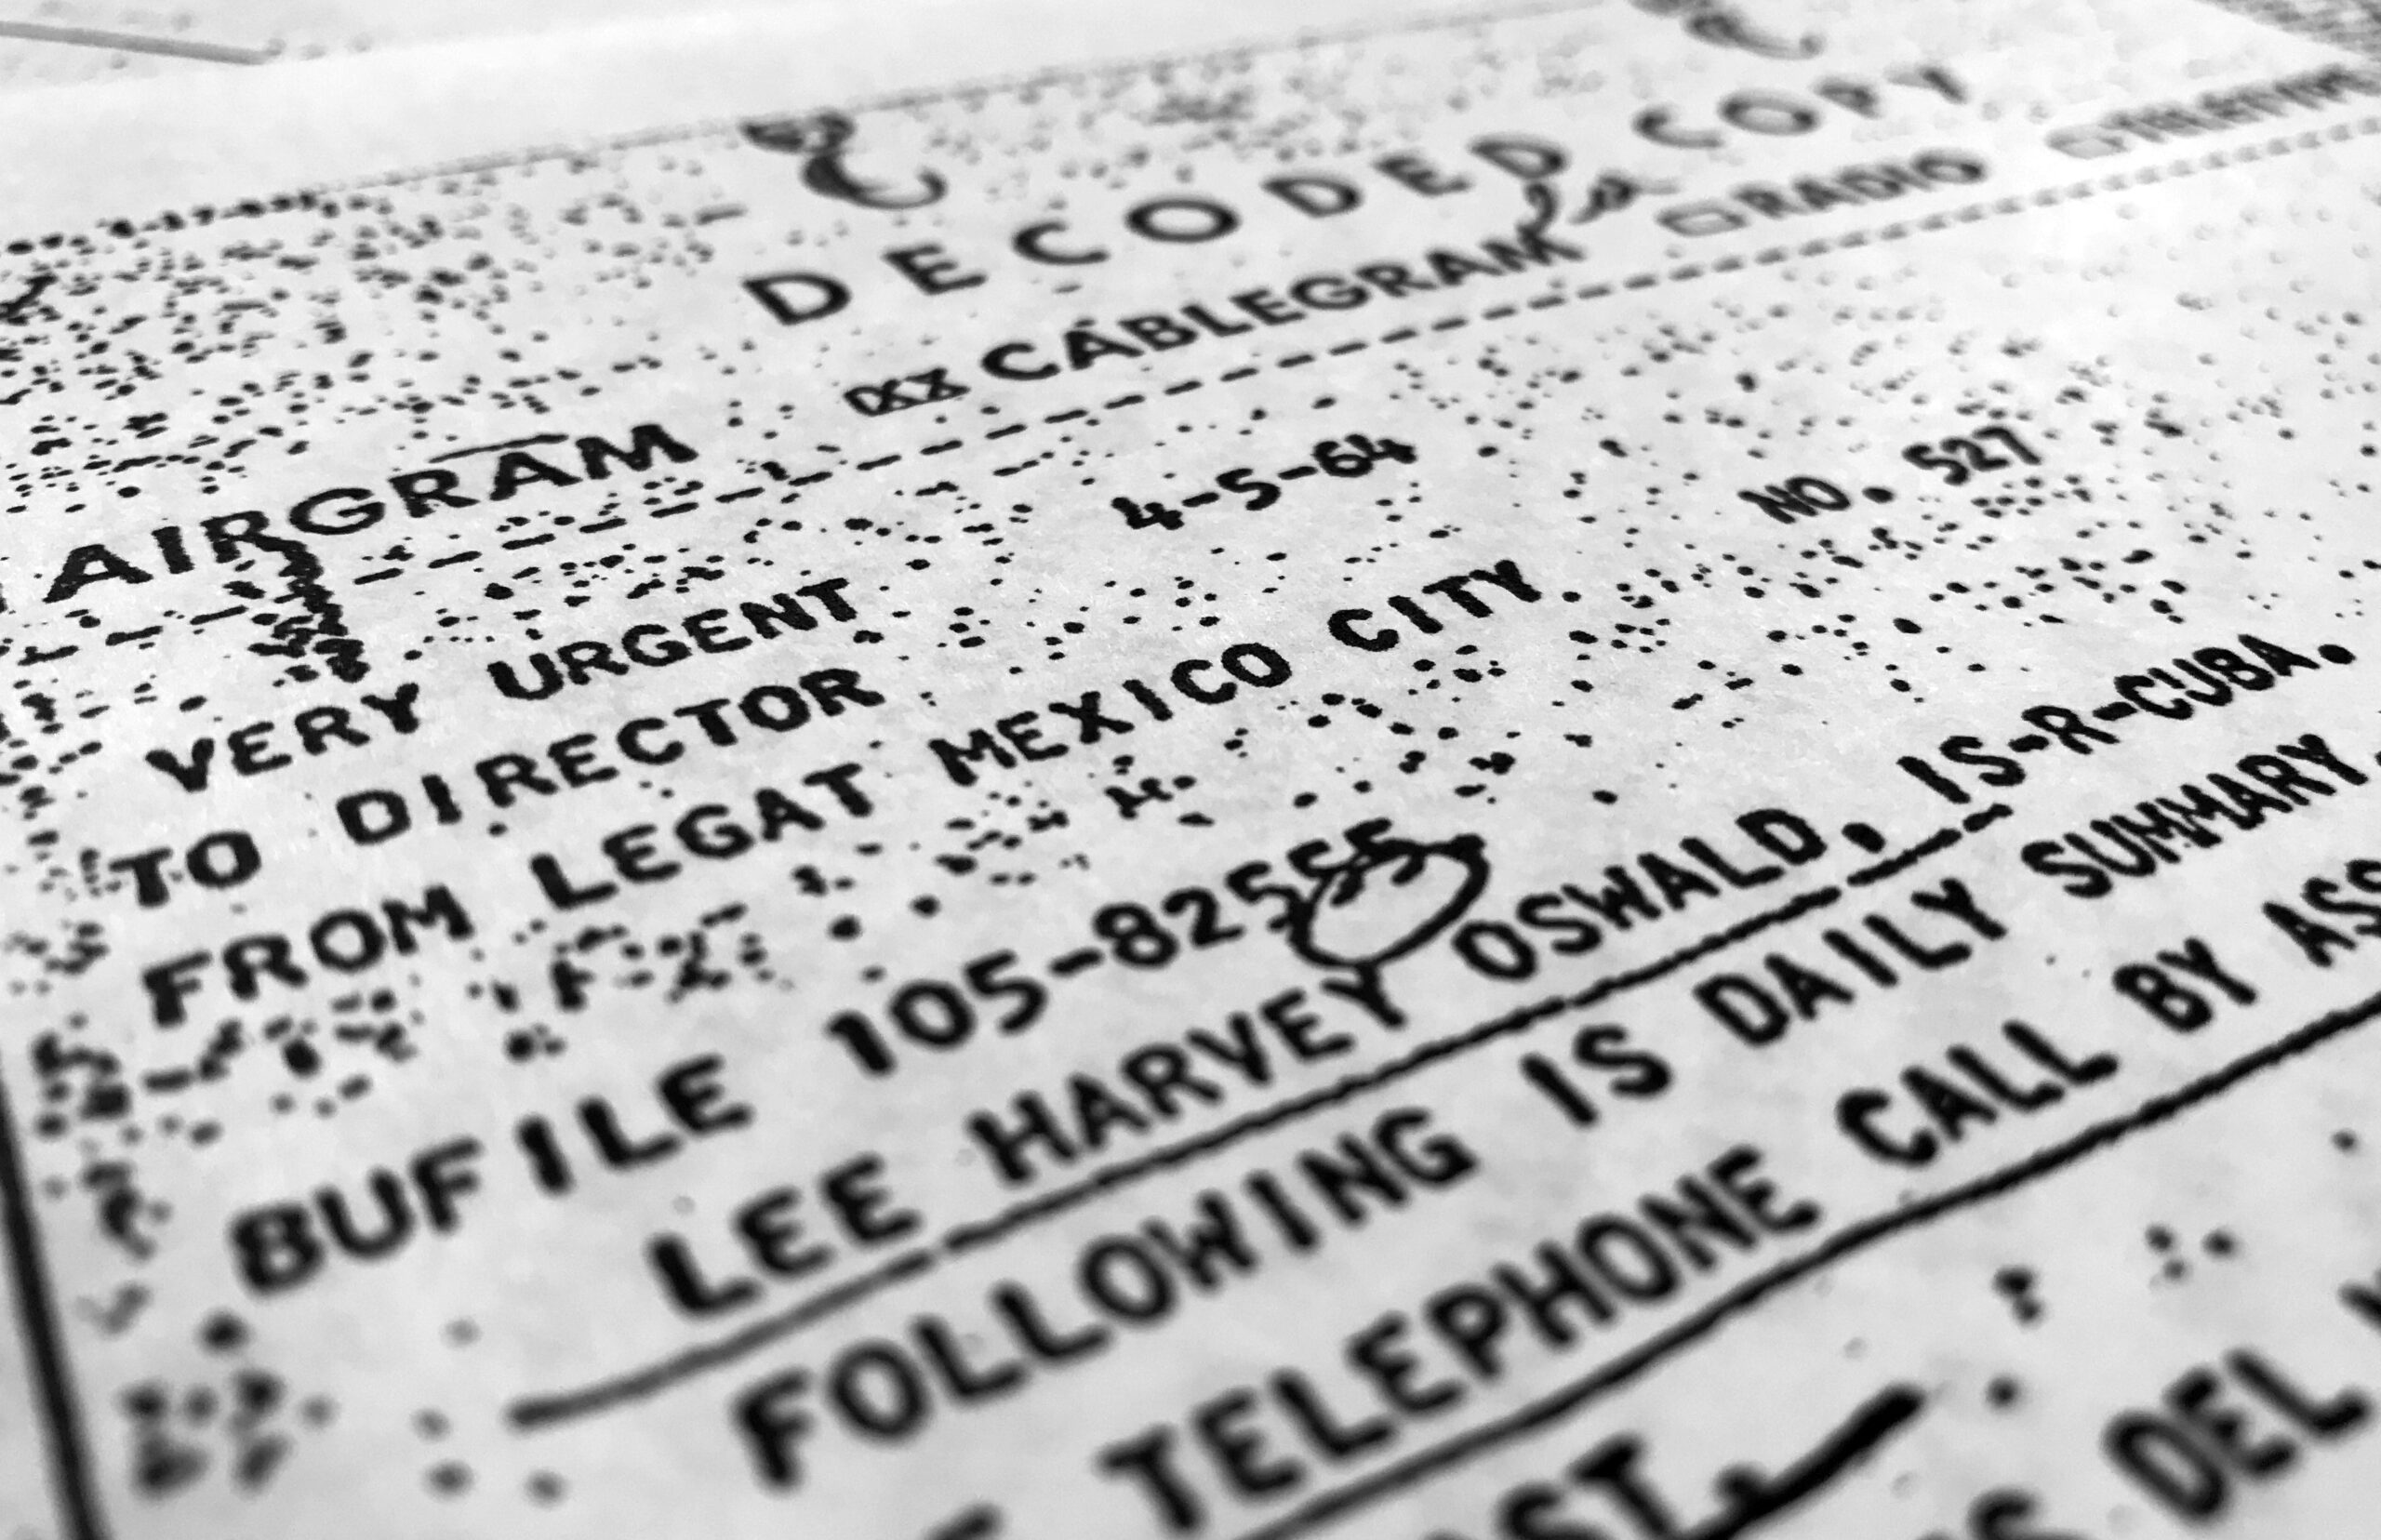 DECODED COPY
AIRGRAM CABLEGRAM RADIO TELETYPE
VERY URGENT 4-5-64
TO DIRECTOR
FROM LEGAT MEXICO CITY NO. 527
BUFILE 105-82555
LEE HARVEY OSWALD, IS-R-CUBA.
FOLLOWING IS DAILY SUMMARY.
TELEPHONE CALL BY
DEL